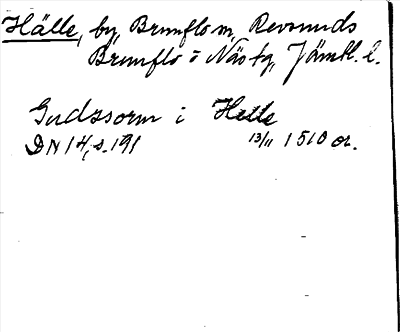 Hälle, by, Brunflo m, Revsunds
Brunflo o Näs tg, Jämtl. l.
Gudzsorm i Helle
DN 14, s. 191 13/11 1510 or.